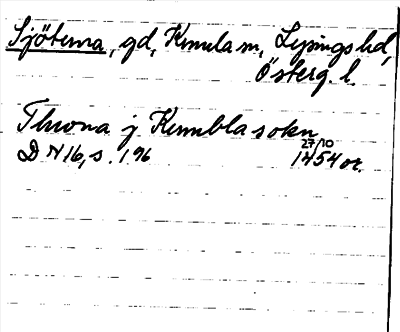 Sjötuna, gd, Kumla sn, Lysings hd,
Österg. l.
Thwna j Kumbla sokn
D N 16, s. 196 27/10 1454 or.